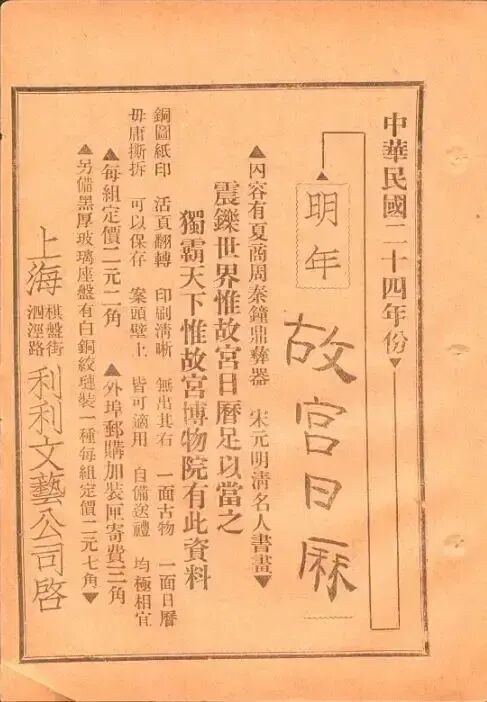 中華民國二十四年份
明年
故宮日厤
內容有夏商周秦鐘鼎彝器 宋元明清名人書畫
震鑠世界惟故宮日曆足以當之
獨霸天下惟故宮博物院有此資料
銅圖紙印 活頁翻轉 印刷清晰 無出其右 一面古物 一面日曆
毋庸撕拆 可以保存 案頭壁上 皆可適用 自備送禮 均極相宜
每組定價二元二角 外埠郵購加裝匣寄費三角
另備黑厚玻璃座盤有白銅絞璉裝一種每組定價二元七角
上海
棋盤街
泗涇路
利利文藝公司啓